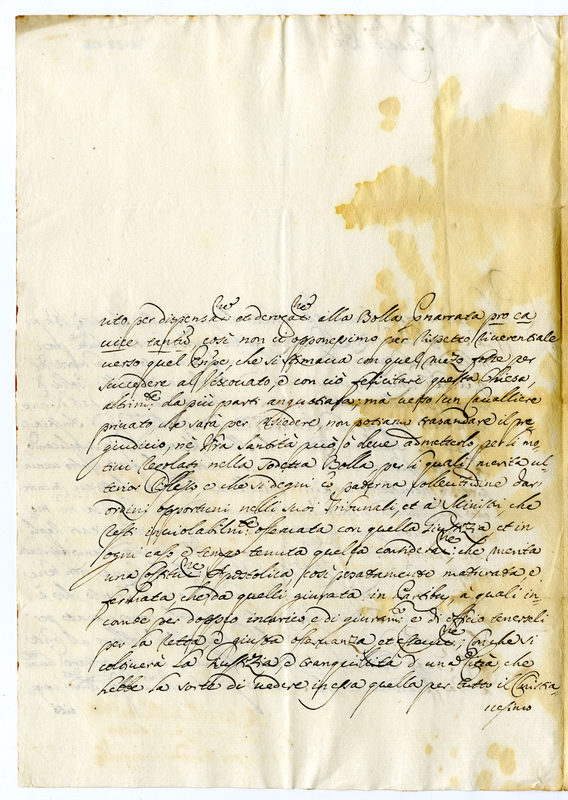 uito per dispensar.ne et derogat.ne alla Bolla, narrata pro ea
uice tantũ, così non ci opponessimo per rispetto riuerentiale
uerso quel che si stimaua con quel mezo fosse per
succedere al Vescouato, e con ciò felicitare questa Chiesa,
altrim.te da più parti angustiata; mà uerso un Caualliere
priuato che sarà per risiedere, non potiamo trasandare il pre
giudicio, nè V'ra Santità può, ò deue admetterlo per li mo
tiui legolati nella sodetta Bolla, per li quali merita ul
terior e che si degni cõ paterna sollecitudine dar
ordini opportuni nelli suoi Tribunali, et à Ministri che
resti inuiolabilm.te osseruata con quella giustezza et in
ogni caso è sempre tenuta quella che merita
una Apostolica così pesatamente maturata, e
fermata che da quelli giurata in à quali in
combe per doppio incarico, e di giuram.to e di officio tenerseli
per la retta, e giusta osseruanza et con che si
coltiuerà la giustizia, e tranquillità d'una Città che
hebbe la sorte di uedere in essa quella per tutto il Christia
nesimo